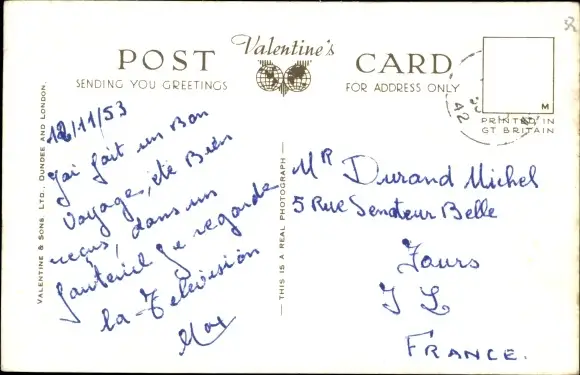 Valentine's
POST CARD
SENDING YOU GREETINGS
FOR ADDRESS ONLY
M
PRINTED IN
GT BRITAIN
A2
VALENTINE & SONS, LTD., DUNDEE AND LONDON.
— THIS IS A REAL PHOTOGRAPH —
12/11/53
J'ai fait un Bon
Voyage, été Bien
reçus, dans un
fauteuil je regarde
la Télévision
MR Durand Michel
5 Rue Senateur Belle
Tours
I L
FRANCE.